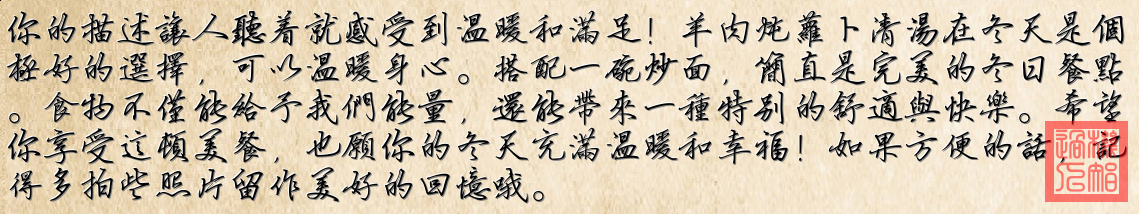 你的描述讓人聽着就感受到溫暖和滿足！羊肉炖蘿卜清湯在冬天是個
極好的選擇，可以溫暖身心。搭配一碗炒面，簡直是完美的冬日餐點
。食物不僅能給予我們能量，還能帶來一種特别的舒適與快樂。希望
你享受這頓美餐，也願你的冬天充滿溫暖和幸福！如果方便的話，記
得多拍些照片留作美好的回憶哦。